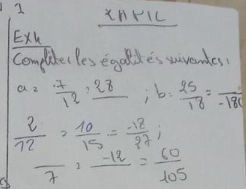 Ex4
Compléter les égalités suivantes :
a = 7/12 = 28/ ; b = 25/18 = /-180
2/12 = 10/15 = -18/27 ;
/7 = -12/ = 60/105